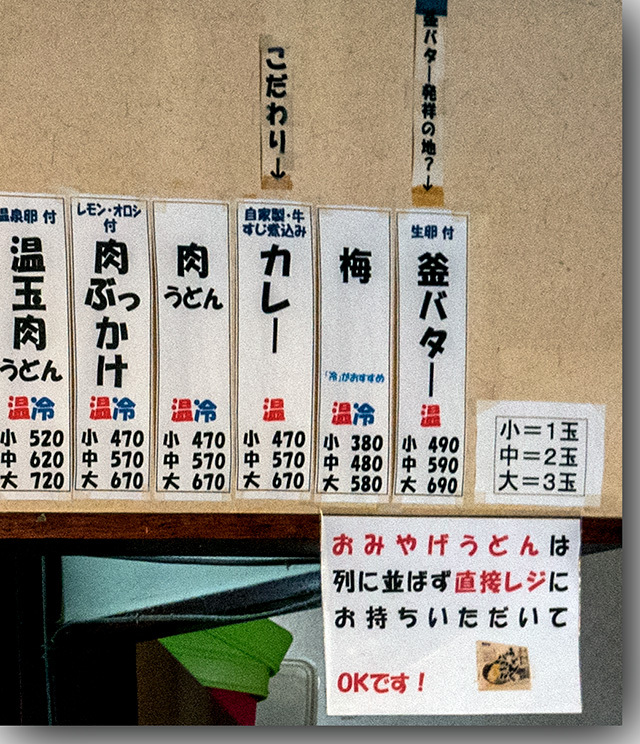 釜バター発祥の地?↓
こだわり↓
生卵 付
釜バター
温
小 490
中 590
大 690
梅
「冷」がおすすめ
温冷
小 380
中 480
大 580
自家製・牛
すじ煮込み
カレー
温
小 470
中 570
大 670
肉
うどん
温冷
小 470
中 570
大 670
レモン・オロシ
付
肉
ぶっかけ
温冷
小 470
中 570
大 670
温泉卵 付
温玉肉
うどん
温冷
小 520
中 620
大 720
小=1玉
中=2玉
大=3玉
おみやげうどんは
列に並ばず直接レジに
お持ちいただいて
OKです！